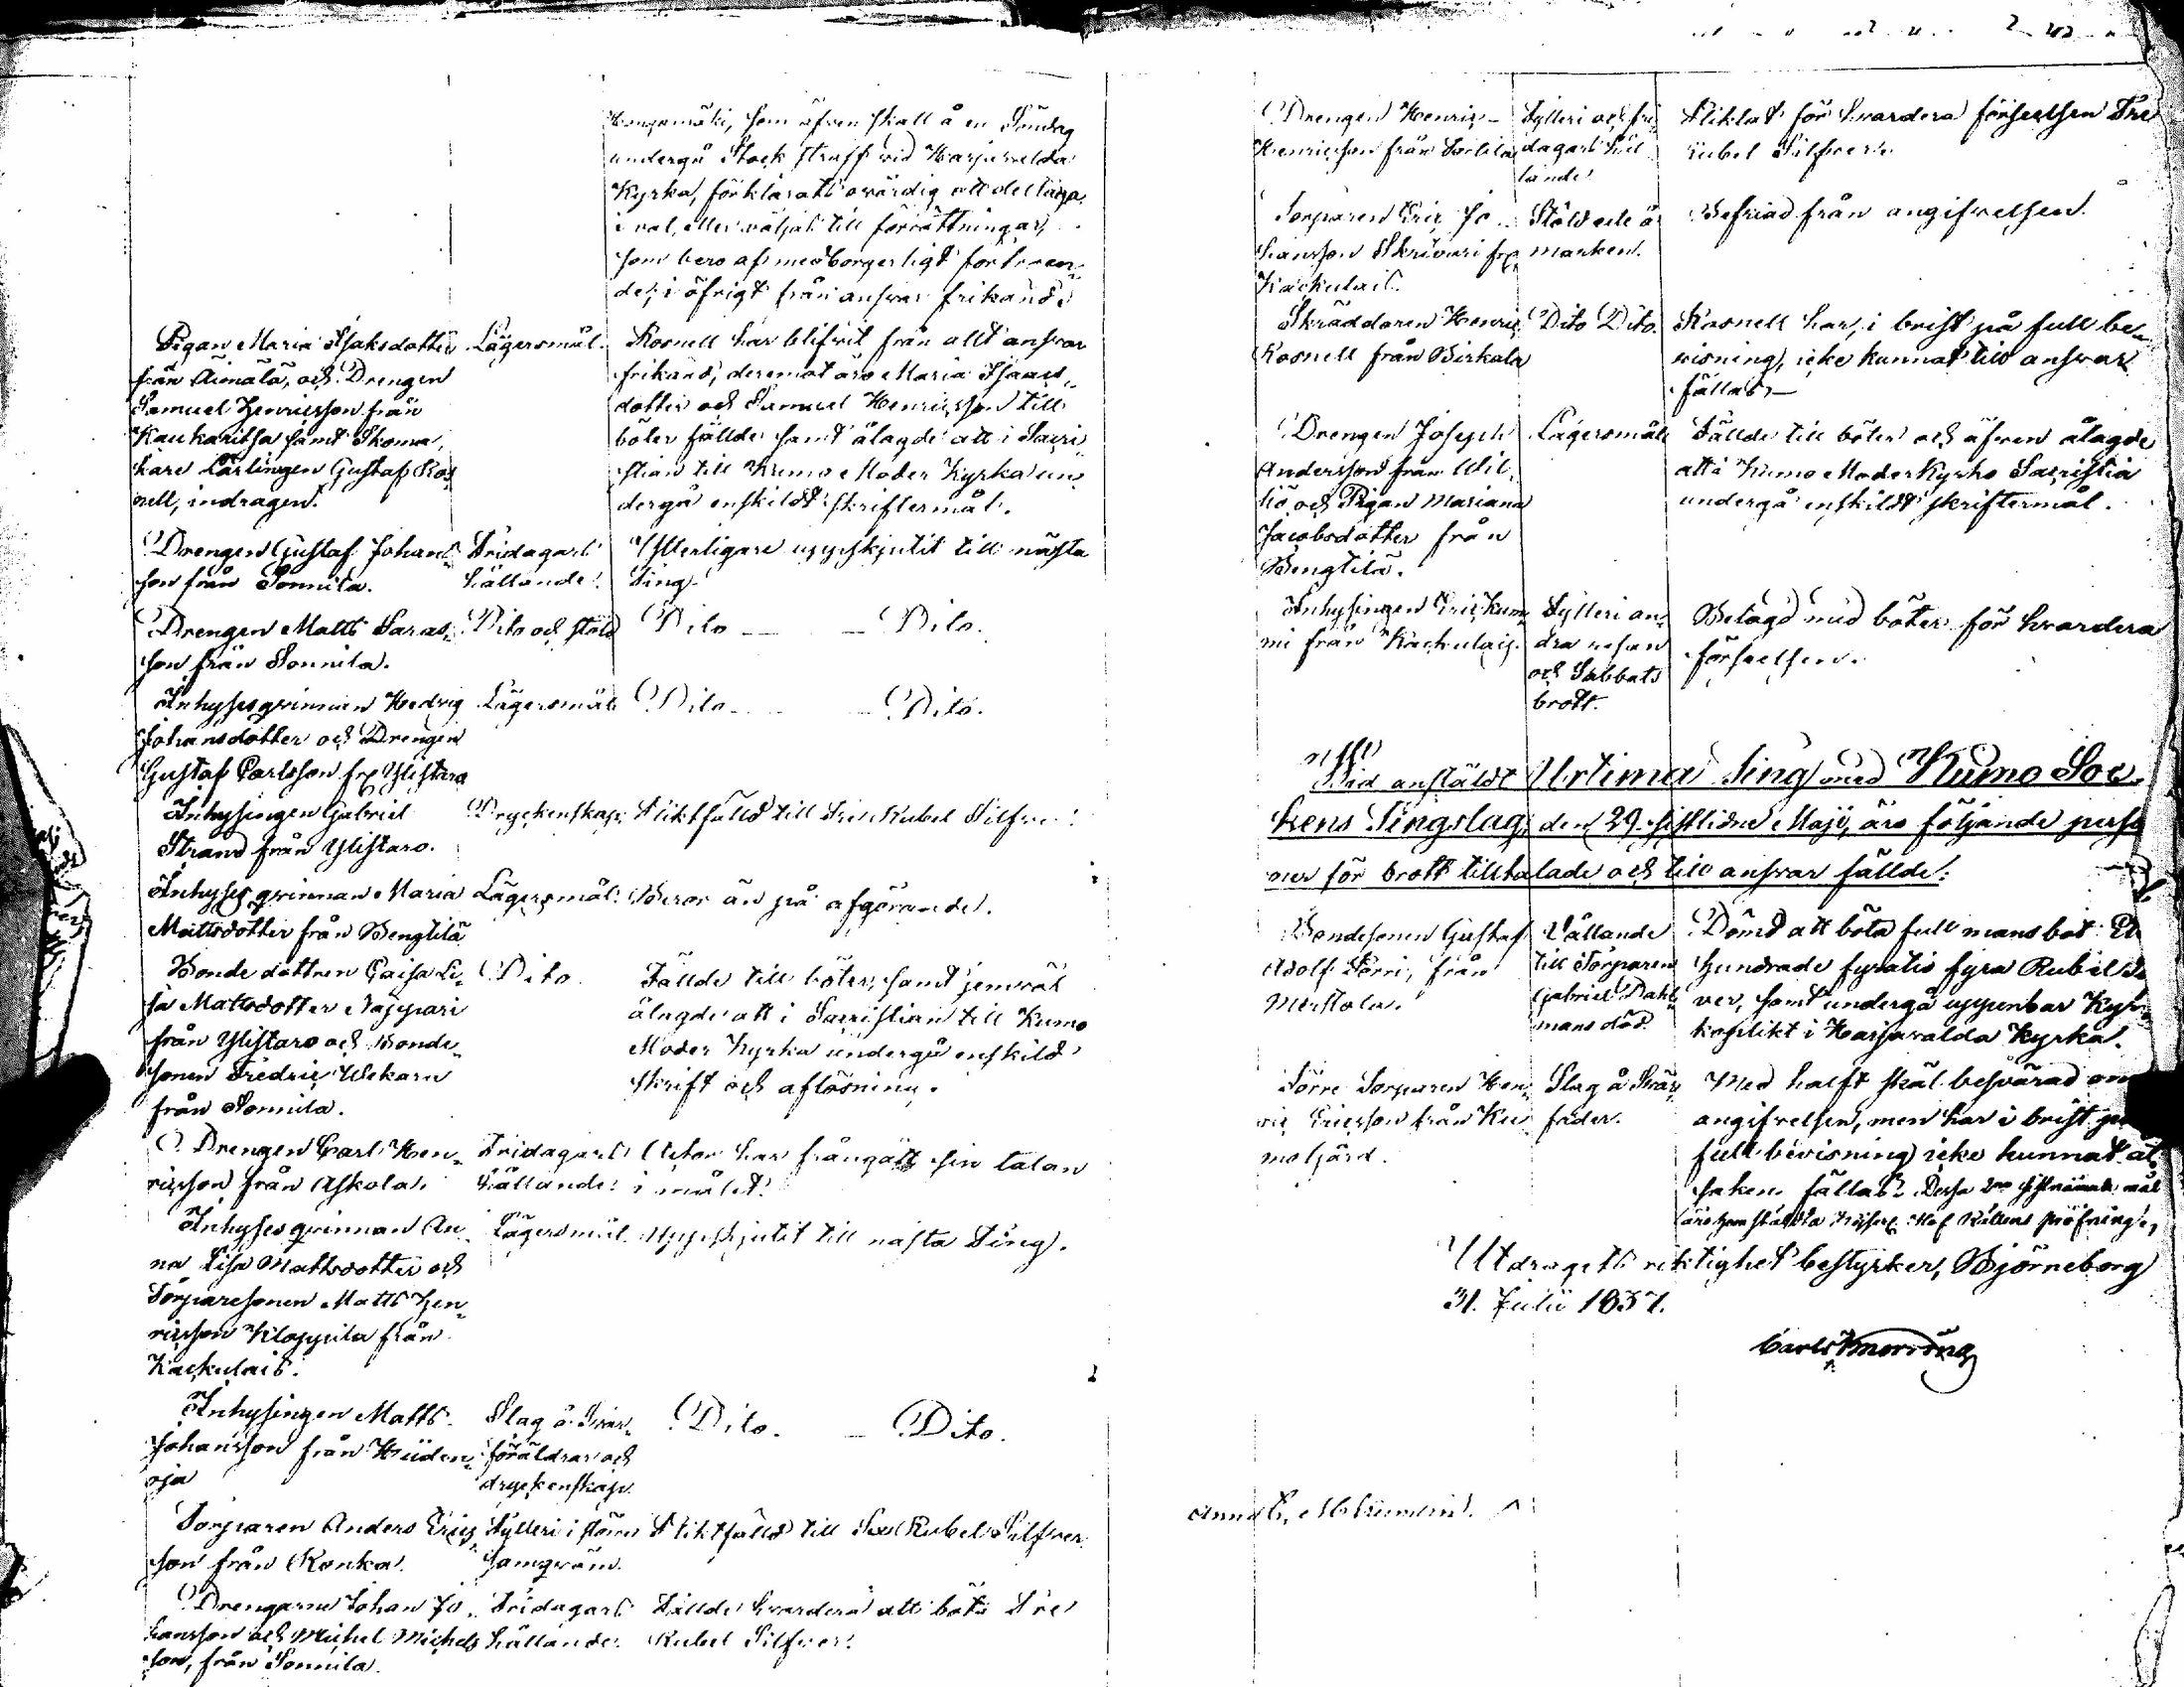 Kongomäki, som äfven skall å en Söndag
undergå Stock straff vid Harjavalda
Kyrka, förklarats ovärdig att deltaga
i val, eller väljas till förrättningar,
som bero af medborgerligt förtroen-
de; i öfrigt från ansvar frikänd.
Pigan Maria Isaksdotter
från Äimälä, och Drengen
Samuel Henricsson från
Kaukaritsa samt Skoma-
kare Lärlingen Gustaf Ros-
nell, indragen.
Lägersmål.
Rosnell har blifvit från allt ansvar
frikänd, deremot äro Maria Isaacs-
dotter och Samuel Henricsson till
böter fällde samt ålagde att i Sacri-
stian till Kumo Moder Kyrka un-
dergå enskildt skriftermål.
Drengen Gustaf Johans-
son från Sonnila.
Fridagars
hållande.
Ytterligare uppskjutit till nästa
Ting.
Drengen Matts Saras-
son från Sonnila.
Dito och stöld
Dito — — Dito.
Inhysesqvinnan Hedvig
Johansdotter och Drengen
Gustaf Carlsson frn Ylistaro
Lägersmål
Dito — — Dito.
Inhysingen Gabriel
Strand från Ylistaro.
Dryckenskap.
Pliktfälld till Tre Rubel Silfver.
Inhysesqvinnan Maria
Mattsdotter från Bengtilä
Lägersmål.
Beror än på afgörande.
Bonde dottren Caisa Li-
sa Mattsdotter Näppari
från Ylistaro och Bonde-
sonen Fredric Uckarn
från Sonnila.
Dito
Fällde till böter, samt jemväl
ålagde att i Sacristian till Kumo
Moder Kyrka undergå enskild
skrift och aflösning.
Drengen Carl Hen-
ricsson från Askola.
Fridagars
hållande.
Actor har frångått sin talan
i målet.
Inhysesqvinnan An-
na Lisa Mattsdotter och
Torparesonen Matts Hen-
ricsson Kloppila från
Kackulais.
Lägersmål.
Uppskjutit till nästa Ting.
Inhysingen Matts
Johansson från Hiiden-
oja
Slag å Svär-
föräldrar och
dryckenskap.
Dito. — Dito.
Torparen Anders Erics-
son från Ronka.
Fylleri i större
samqväm.
Pliktfälld till Sex Rubel Silfver.
Drengarne Johan Jo-
hansson och Michel Michels-
son, från Sonnila.
Fridagars
hållande.
Fällde hvardera att böta Tre
Rubel Silfver.
Drengen Henric
Henricsson från Sonnila
Fylleri och fri-
dagars hål-
lande.
Pliktat för hvardera förseelsen Tre
Rubel Silfver.
Torparen Eric Jo-
hansson Skrivari frn
Kackulais.
Stöld och å-
marken.
Befriad från angifvelsen.
Skräddaren Henric
Rosnell från Birkala
Dito Dito.
Rosnell har, i brist på full be-
visning, icke kunnat till ansvar
fällas.—
Drengen Joseph
Andersson från Wil-
liö och Pigan Mariana
Jacobsdotter från
Bengtilä.
Lägersmål
Fällde till böter och äfven ålagde
att i Kumo Moder Kyrko Sacristia
undergå enskildt skriftermål.
Inhysingen Eric Kum-
mi från Kackulais.
Fylleri an-
dra resan
och Sabbats
brott.
Belagd med böter för hvardera
förseelsen.
Vid anstäldt Urtima Ting med Kumo Soc-
kens Tingslag, den 29. sistlidne Maji, äro följande perso-
ner för brott tilltalade och till ansvar fällde:
Bondesonen Gustaf
Adolf Törri, från
Merstola.
Vållande
till Torparen
Gabriel Dahl-
mans död.
Dömd att böta full mansbot Et
hundrade fyratio fyra Rubel
ver, samt undergå uppenbar Kyr-
koplikt i Harjavalda Kyrka.
Förre Torparen Hen-
ric Ericsson från Ku-
mo gård.
Slag å Svär-
fader.
Med halft skäl besvärad om
angifvelsen, men har i brist på
full bevisning icke kunnat åt
saken fällas. Dessa 2ne sistnämnde mål
äro hemstälda Kejserl. Hof Rättens pröfning.
Utdragets riktighet bestyrker, Björneborg
31. Julii 1837.
Carl